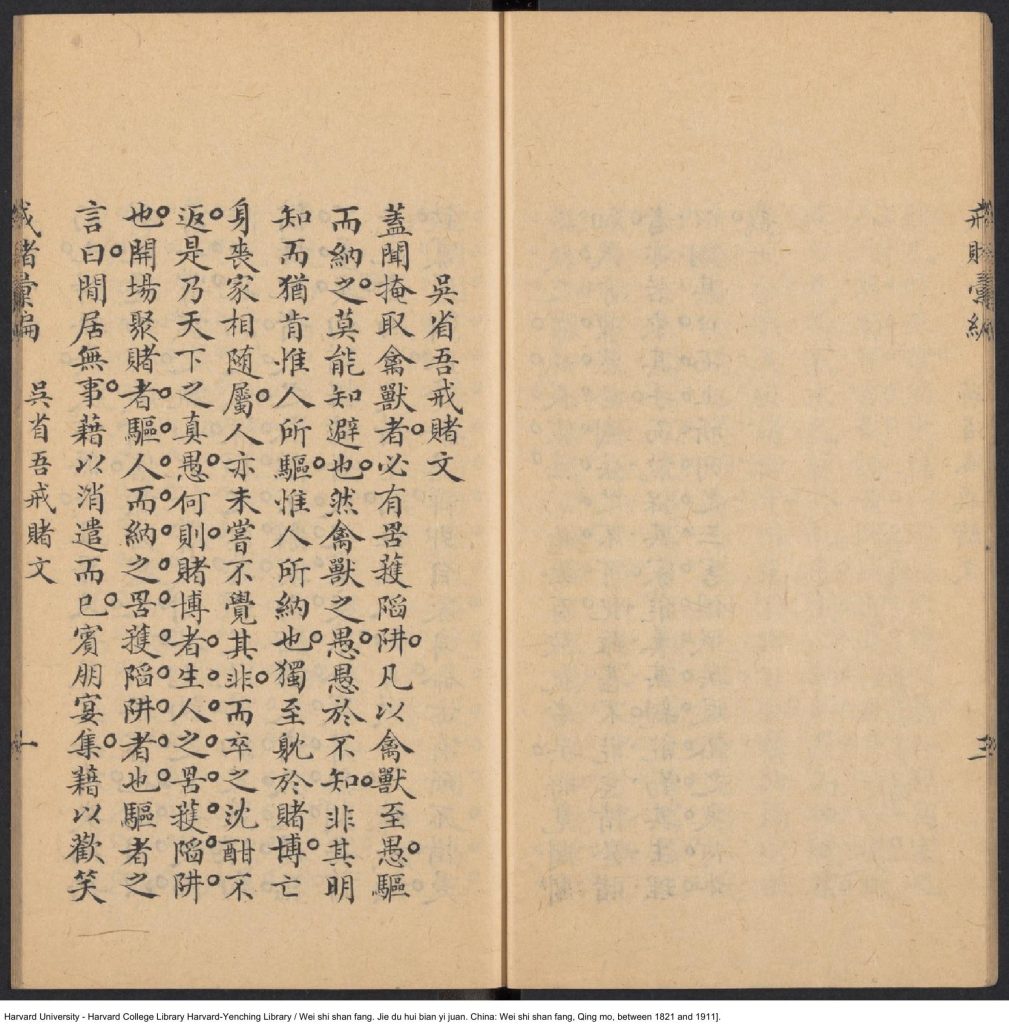 戒賭彙編
三
吳省吾戒賭文
蓋聞掩取禽獸者必有罟擭陷阱凡以禽獸至愚驅
而納之莫能知避也然禽獸之愚愚於不知非其明
知而猶肯惟人所驅惟人所納也獨至躭於賭博亡
身喪家相随屬人亦未嘗不覺其非而卒之沈酣不
返是乃天下之真愚何則賭博者生人之罟擭陷阱
也開場聚賭者驅人而納之罟擭陷阱者也驅者之
言曰閒居無事藉以消遣而已賓朋宴集藉以歡笑
戒賭彙編 吳省吾戒賭文 一
Harvard University - Harvard College Library Harvard-Yenching Library / Wei shi shan fang. Jie du hui bian yi juan. China: Wei shi shan fang, Qing mo, between 1821 and 1911].